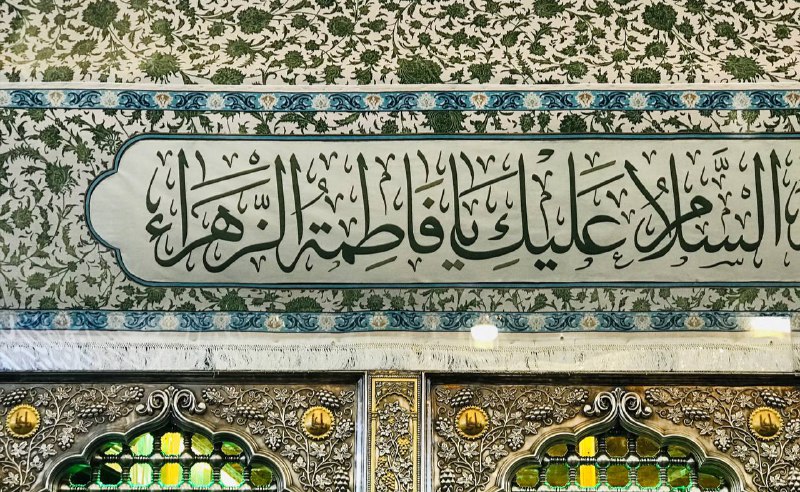 السَّلامُ عَلَيْكِ يَا فَاطِمَةُ الزَّهْرَاءُ